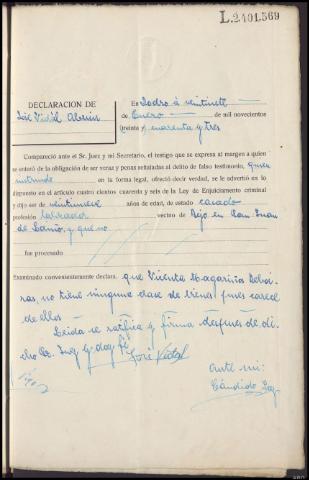 L.2401.569
DECLARACION DE
José Vidal Abuin
En Padrón a veintisiete
de Enero de mil novecientos
treinta y cuarenta y tres
Compareció ante el Sr. Juez y mi Secretario, el testigo que se expresa al margen a quien
se enteró de la obligación de ser veraz y penas señaladas al delito de falso testimonio, quien
en la forma legal, ofreció decir verdad, se le advertió en lo
dispuesto en el artículo cuatro cientos cuarenta y seis de la Ley de Enjuiciamiento criminal
y dijo ser de años de edad, de estado casado
profesión labrador vecino de Bejo en San Juan
de Laiño, y que no
fue procesado
Examinado convenientemente declara, que Vicenta Magariños
no tiene ninguna clase de bienes pues carece
de ellos
Leida se ratifica y firma despues de di
cho Sr. Juez y doy fé
José Vidal
Ante mi:
Cándido